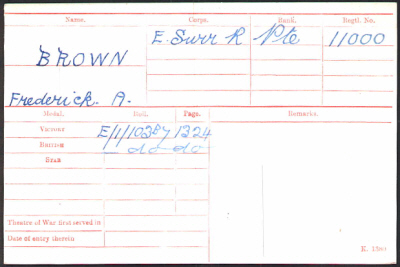 Name. Corps. Rank. Regtl. No.
E. Surr R Pte 11000
BROWN
Frederick. A.
Medal. Roll. Page. Remarks.
VICTORY E/1/103B7 1324
BRITISH do do
STAR
Theatre of War first served in
Date of entry therein